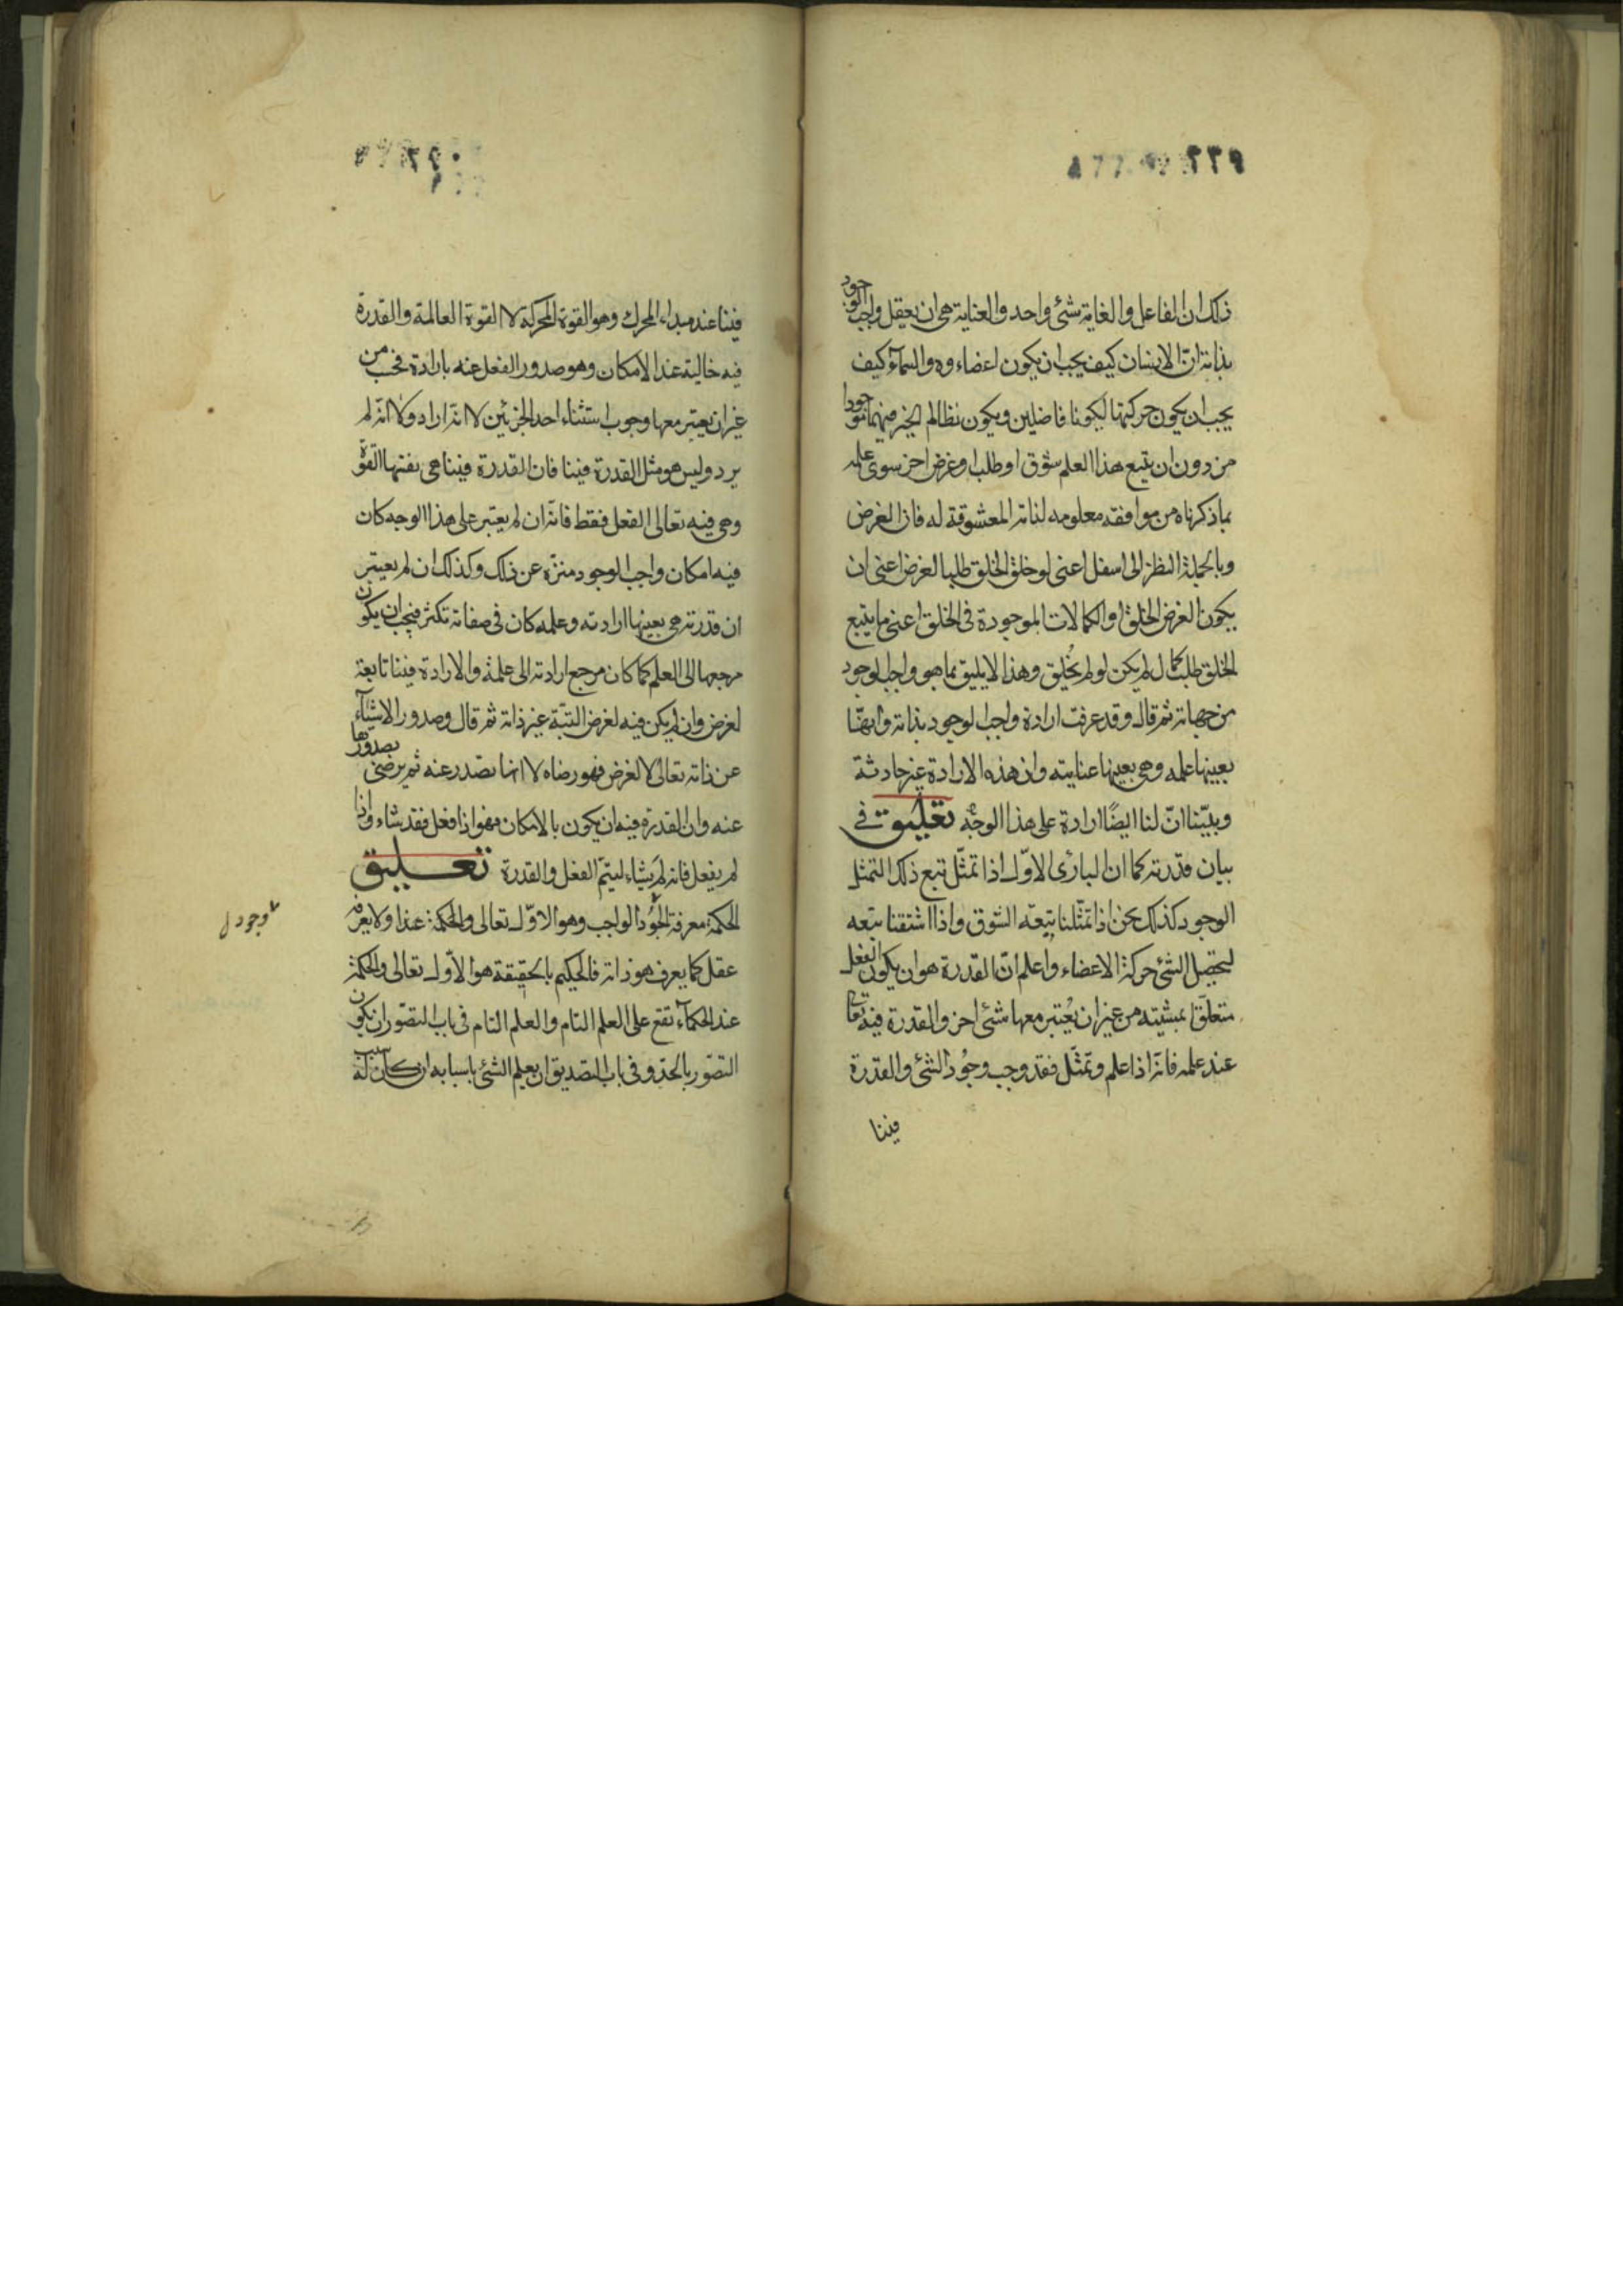 ذلك ان الفاعل والغاية شئ واحد والعناية هى ان يعقل واجب الوجود
بذاته انّ الانسان كيف يجب ان يكون اعضاءه والسمآء كيف
يجب ان يكون حركتها ليكونا فاضلين ويكون نظام الخير فيهما موجودا
من دون ان يتبع هذا العلم شوق او طلب او غرض اخر سوى علمه
بما ذكرناه من موافقه معلومه لذاته المعشوقة له فان الغرض
وبالجملة النظر الى اسفل اعنى لو خلق الخلق طلبا لغرض اعنى ان
يكون الغرض الخلق او الكمالات الموجودة فى الخلق اعنى ما يتبع
الخلق طلب كمال لم يكن لو لم يُخلق وهذا لا يليق بما هو واجب الوجود
من جهاته ثم قال وقد عرفت ارادة واجب الوجود بذاته وانهّا
بعينها علمه وهى بعينها عنايته وان هذه الارادة غير حادثة
وبيّنا انّ لنا ايضًا ارادة على هذا الوجه تعليق فى
بيان قدرته كما ان البارى الاوّل اذا تمثّل تبع ذلك التمثل
الوجود كذلك نحن اذا تمثّلنا تبعه الشوق واذا اشتقنا تبعه
لتحصيل الشئ حركة الاعضاء واعلم انّ القدرة هو ان يكون الفعل
متعلّقا بمشيته من غير ان يُعتبر معها شئ اخر والقدرة فيه تعالى
عند علمه فانه اذا علم وتمثّل فقد وجب وجُود الشئ والقدرة
فينا
فينا عند مبداء المحرك وهو القوة المحركة لا القوة العالمة والقدرة
فيه خالية عن الامكان وهو صدور الفعل عنه بارادة فحسب من
غير ان يعتبر معها وجوب استثناء احد الجزئين لا انه اراد ولا انه لم
يرد وليس هو مثل القدرة فينا فان القدرة فينا هى بعينها القوّة
وهى فيه تعالى الفعل فقط فانه ان لم يعتبر على هذا الوجه كان
فيه امكان وواجب الوجود منزه عن ذلك وكذلك ان لم يعتبر
ان قدرته هى بعينها ارادته وعلمه كان فى صفاته تكثر فيجب ان يكون
مرجعها الى العلم كما كان مرجع ارادته الى علمه والارادة فينا تابعة
لغرض وان لم يكن فيه لغرض البتّة غير ذاته ثم قال وصدور الاشيآء
عن ذاته تعالى لا لغرض فهو رضاه لا انها تصدر عنه ثم يرضى بصدورها
عنه وان القدرة فيه ان يكون بالامكان فهو اذا فعل فقد شاء واذا
لم يفعل فانه لم يشاء ليتم الفعل والقدرة تعليق
الحكمة معرفة الوجُود الواجب وهو الاوّل تعالى والحكمة عندا ولا يعرفه
عقل كما يعرف هو ذاته فالحكيم بالحقيقة هو الاوّل تعالى والحكمة
عند الحكمآء تقع على العلم التام والعلم التام فى باب التصّور ان يكون
التصّور بالحدّ وفى باب التصديق ان يعلم الشئ باسبابه ان كان له سبب
وجود ل